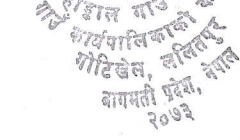 गाउँ कार्यपालिकाको
गोटिखेल, ललितपुर
बागमती प्रदेश, नेपाल
२०७३